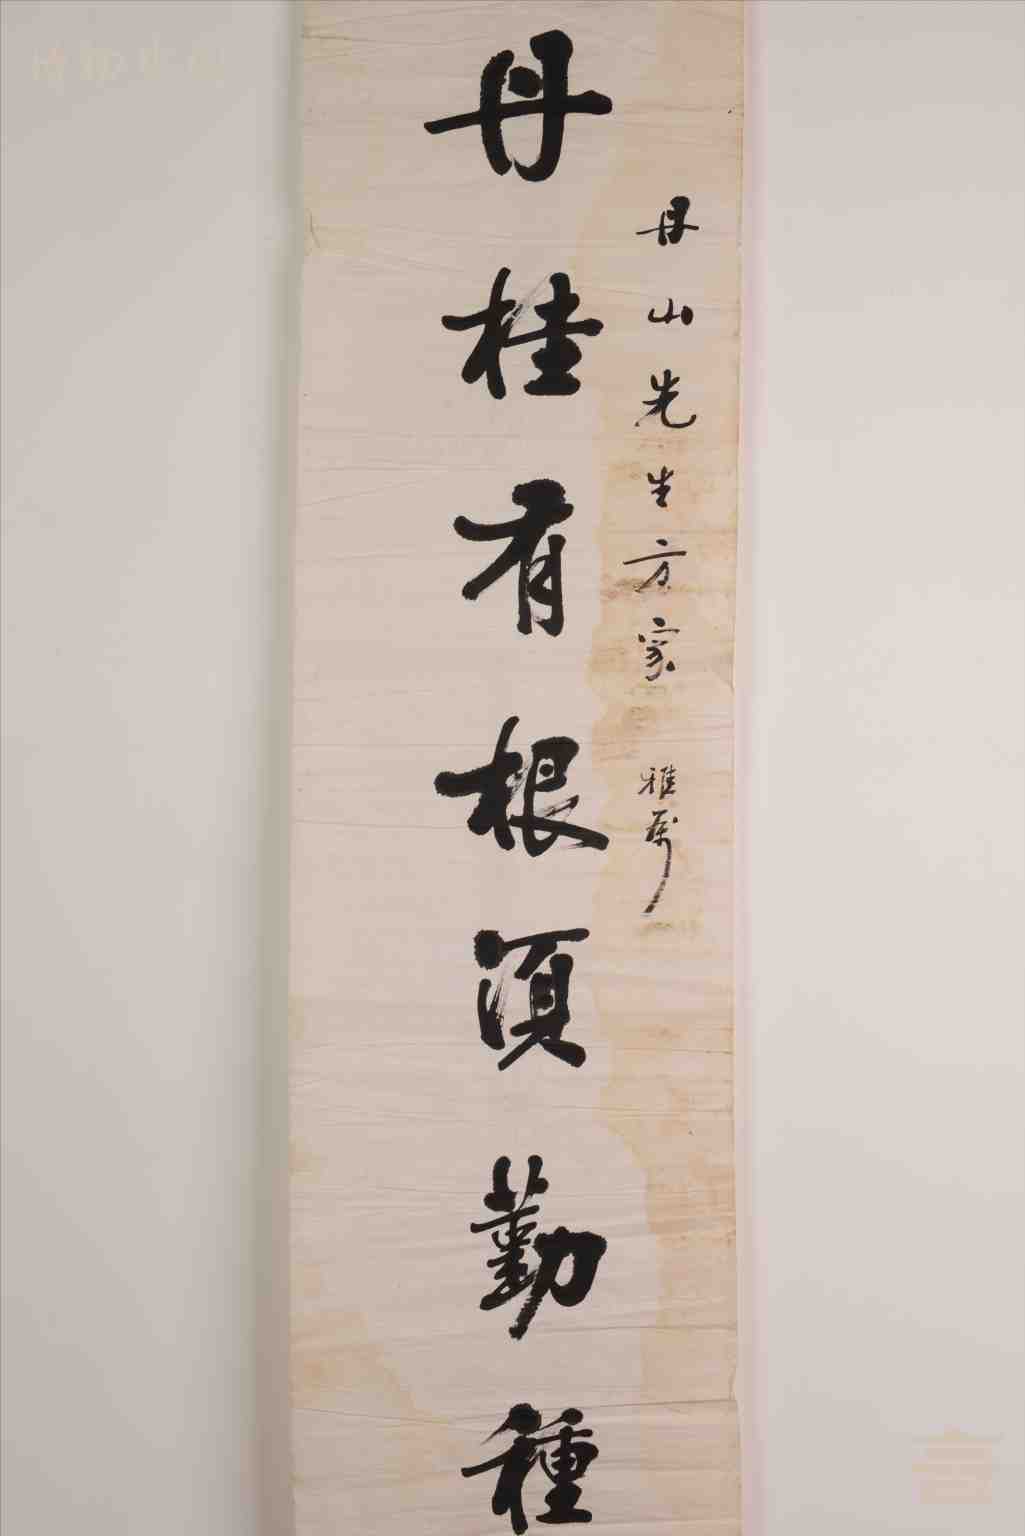 丹山先生方家 雅屬
丹桂有根須勤種